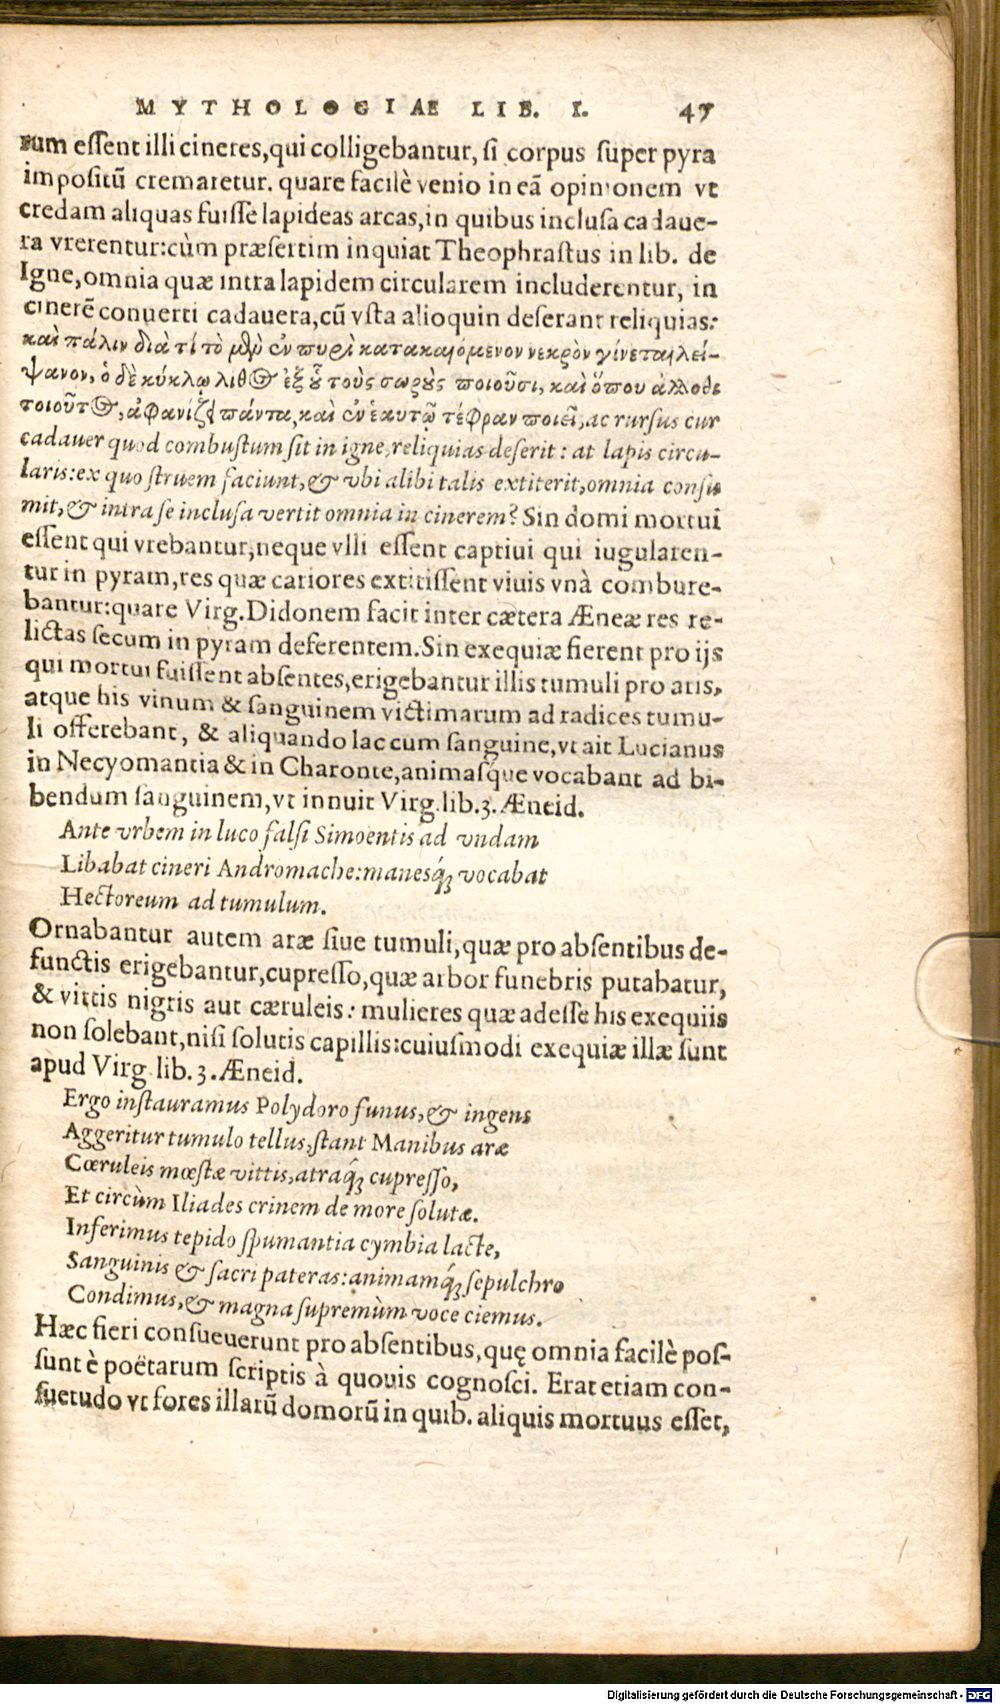 MYTHOLOGIAE LIB. I. 47
rum essent illi cineres, qui colligebantur, si corpus super pyra
impositū cremaretur. quare facilè venio in eā opinionem vt
credam aliquas fuisse lapideas arcas, in quibus inclusa cadaue-
ra vrerentur: cùm præsertim inquiat Theophrastus in lib. de
Igne, omnia quæ intra lapidem circularem includerentur, in
cinerē conuerti cadauera, cū vsta alioquin deserant reliquias:
καὶ πάλιν διὰ τί τὸ μὲν ἐν πυρὶ κατακαιόμενον νεκρὸν γίνεται λεί-
ψανον, ὁ δὲ κύκλῳ λίθος ἐξ οὗ τοὺς σωροὺς ποιοῦσι, καὶ ὅπου ἄλλοθι
τοιοῦτος, ἀφανίζει πάντα, καὶ ἐν ἑαυτῷ τέφραν ποιεῖ, ac rursus cur
cadauer quod combustum sit in igne, reliquias deserit: at lapis circu-
laris: ex quo struem faciunt, & vbi alibi talis extiterit, omnia consu
mit, & intra se inclusa vertit omnia in cinerem? Sin domi mortui
essent qui vrebantur, neque vlli essent captiui qui iugularen-
tur in pyram, res quæ cariores extitissent viuis vnà combure-
bantur: quare Virg. Didonem facit inter cætera Æneæ res re-
lictas secum in pyram deferentem. Sin exequiæ fierent pro ijs
qui mortui fuissent absentes, erigebantur illis tumuli pro aris,
atque his vinum & sanguinem victimarum ad radices tumu-
li offerebant, & aliquando lac cum sanguine, vt ait Lucianus
in Necyomantia & in Charonte, animasq́ue vocabant ad bi-
bendum sanguinem, vt innuit Virg. lib. 3. Æneid.
Ante vrbem in luco falsi Simoentis ad vndam
Libabat cineri Andromache: manesq́; vocabat
Hectoreum ad tumulum.
Ornabantur autem aræ siue tumuli, quæ pro absentibus de-
functis erigebantur, cupresso, quæ arbor funebris putabatur,
& vittis nigris aut cæruleis: mulieres quæ adesse his exequiis
non solebant, nisi solutis capillis: cuiusmodi exequiæ illæ sunt
apud Virg. lib. 3. Æneid.
Ergo instauramus Polydoro funus, & ingens
Aggeritur tumulo tellus, stant Manibus aræ
Cœruleis mœstæ vittis, atraq́; cupresso,
Et circùm Iliades crinem de more solutæ.
Inferimus tepido spumantia cymbia lacte,
Sanguinis & sacri pateras: animamq́; sepulchro
Condimus, & magna supremùm voce ciemus.
Hæc fieri consueuerunt pro absentibus, quę omnia facilè pos-
sunt è poëtarum scriptis à quouis cognosci. Erat etiam con-
suetudo vt fores illarū domorū in quib. aliquis mortuus esset,
Digitalisierung gefördert durch die Deutsche Forschungsgemeinschaft - DFG